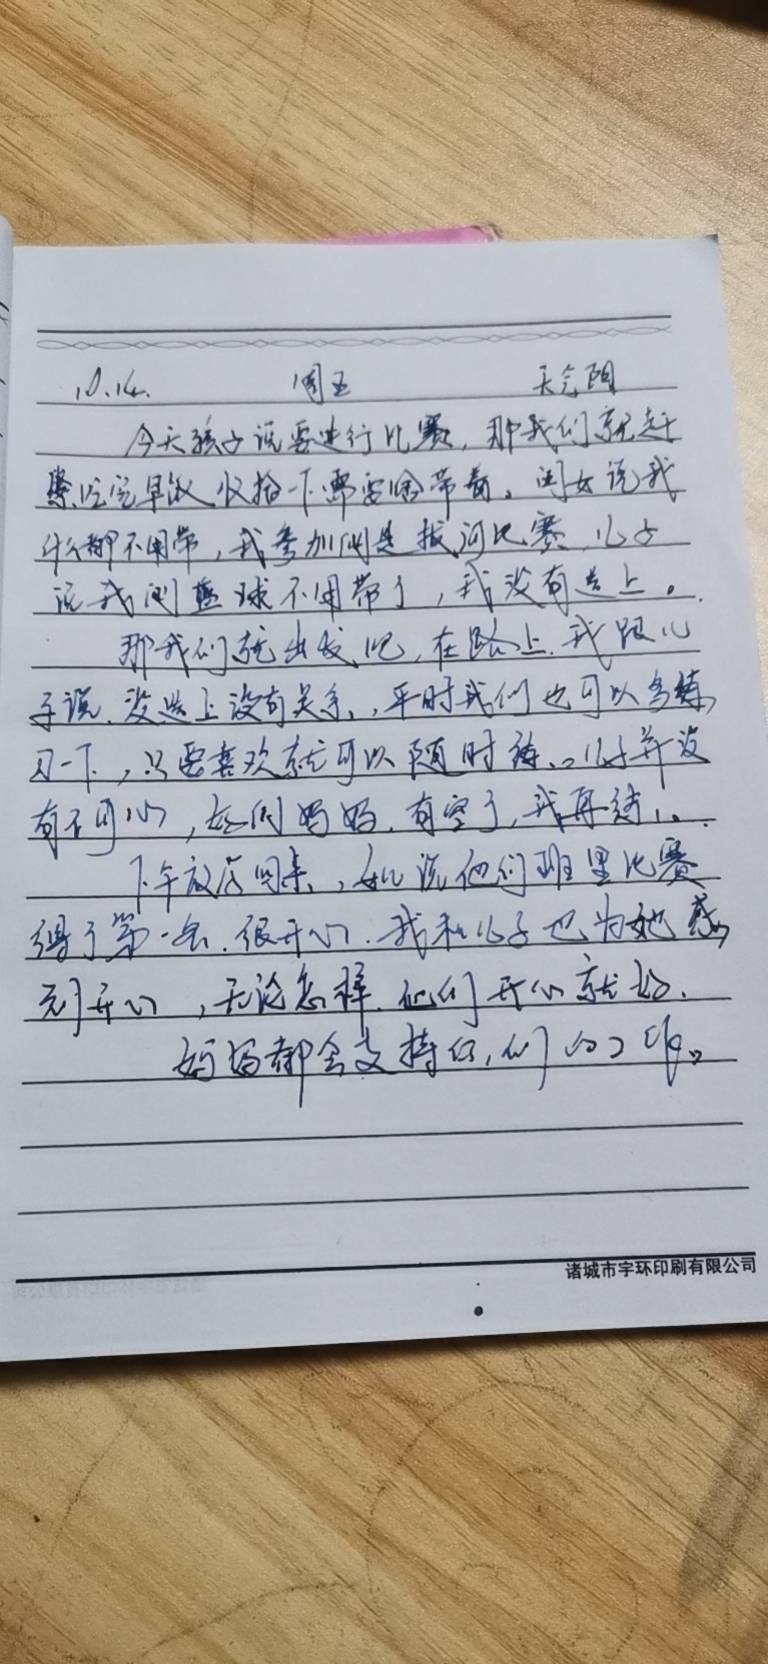 10.14. 周五 天气阴
今天孩子说要进行比赛,那我们就赶
紧吃完早饭收拾一下需要啥带着。闺女说我
什么都不用带,我参加的是拔河比赛,儿子
说我的篮球不用带了,我没有选上。
那我们就出发吧,在路上,我跟儿
子说,没选上没有关系,平时我们也可以多练
习一下,只要喜欢就可以随时练。儿子并没
有不开心,好的妈妈,有空了,我再练。
下午放学回来,女儿说他们班里比赛
得了第一名,很开心,我和儿子也为她感
到开心,无论怎样,他们开心就好,
妈妈都会支持你们的
诸城市宇环印刷有限公司